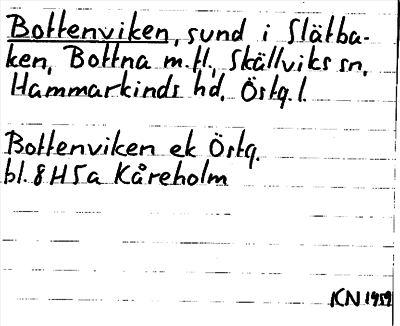 Bottenviken, sund i Slätba-
ken, Bottna m.fl., Skällviks sn,
Hammarkinds hd, Östg.l.
Bottenviken ek Östg.
bl. 8H5a Kåreholm
KN 1959